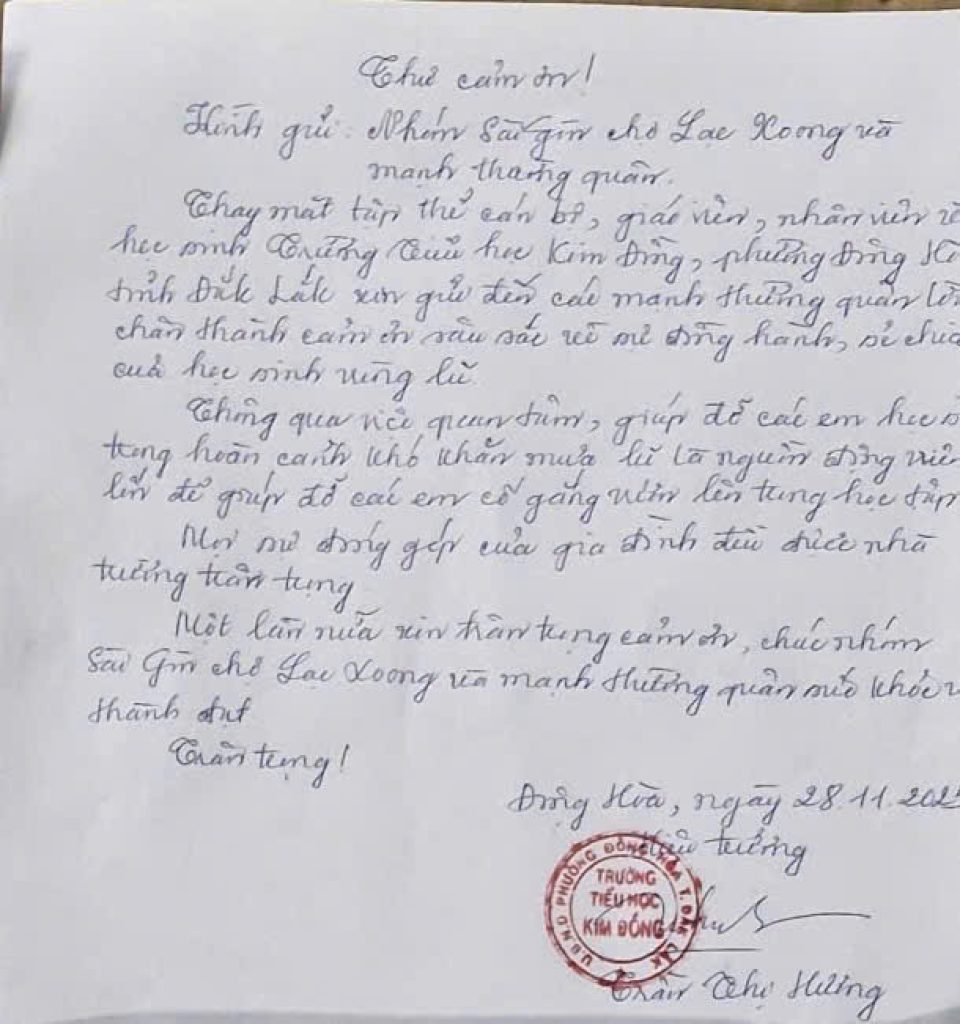 Thư cảm ơn!
Kính gửi: Nhóm Sài Gòn chợ Lạc Xoong và
mạnh thường quân.
Thay mặt tập thể cán bộ, giáo viên, nhân viên và
học sinh Trường Tiểu học Kim Đồng, phường Đông Hò
tỉnh Đắk Lắk xin gửi đến các mạnh thường quân lời
chân thành cảm ơn sâu sắc về sự đồng hành, sẻ chia
của học sinh vùng lũ.
Thông qua việc quan tâm, giúp đỡ các em học s
trong hoàn cảnh khó khăn mưa lũ là nguồn động viên
lớn để giúp đỡ các em cố gắng vươn lên trong học tập
Mọi sự đóng góp của gia đình đều được nhà
trường trân trọng
Một lần nữa xin trân trọng cảm ơn, chúc nhóm
Sài Gòn chợ Lạc Xoong và mạnh thường quân sức khỏe v
thành đạt
Trân trọng!
Đông Hòa, ngày 28.11.2025
Hiệu trưởng
U.B.N.D PHƯỜNG ĐÔNG HÒA T. ĐẮK LẮK
TRƯỜNG
TIỂU HỌC
KIM ĐỒNG
Trần Thị Hương